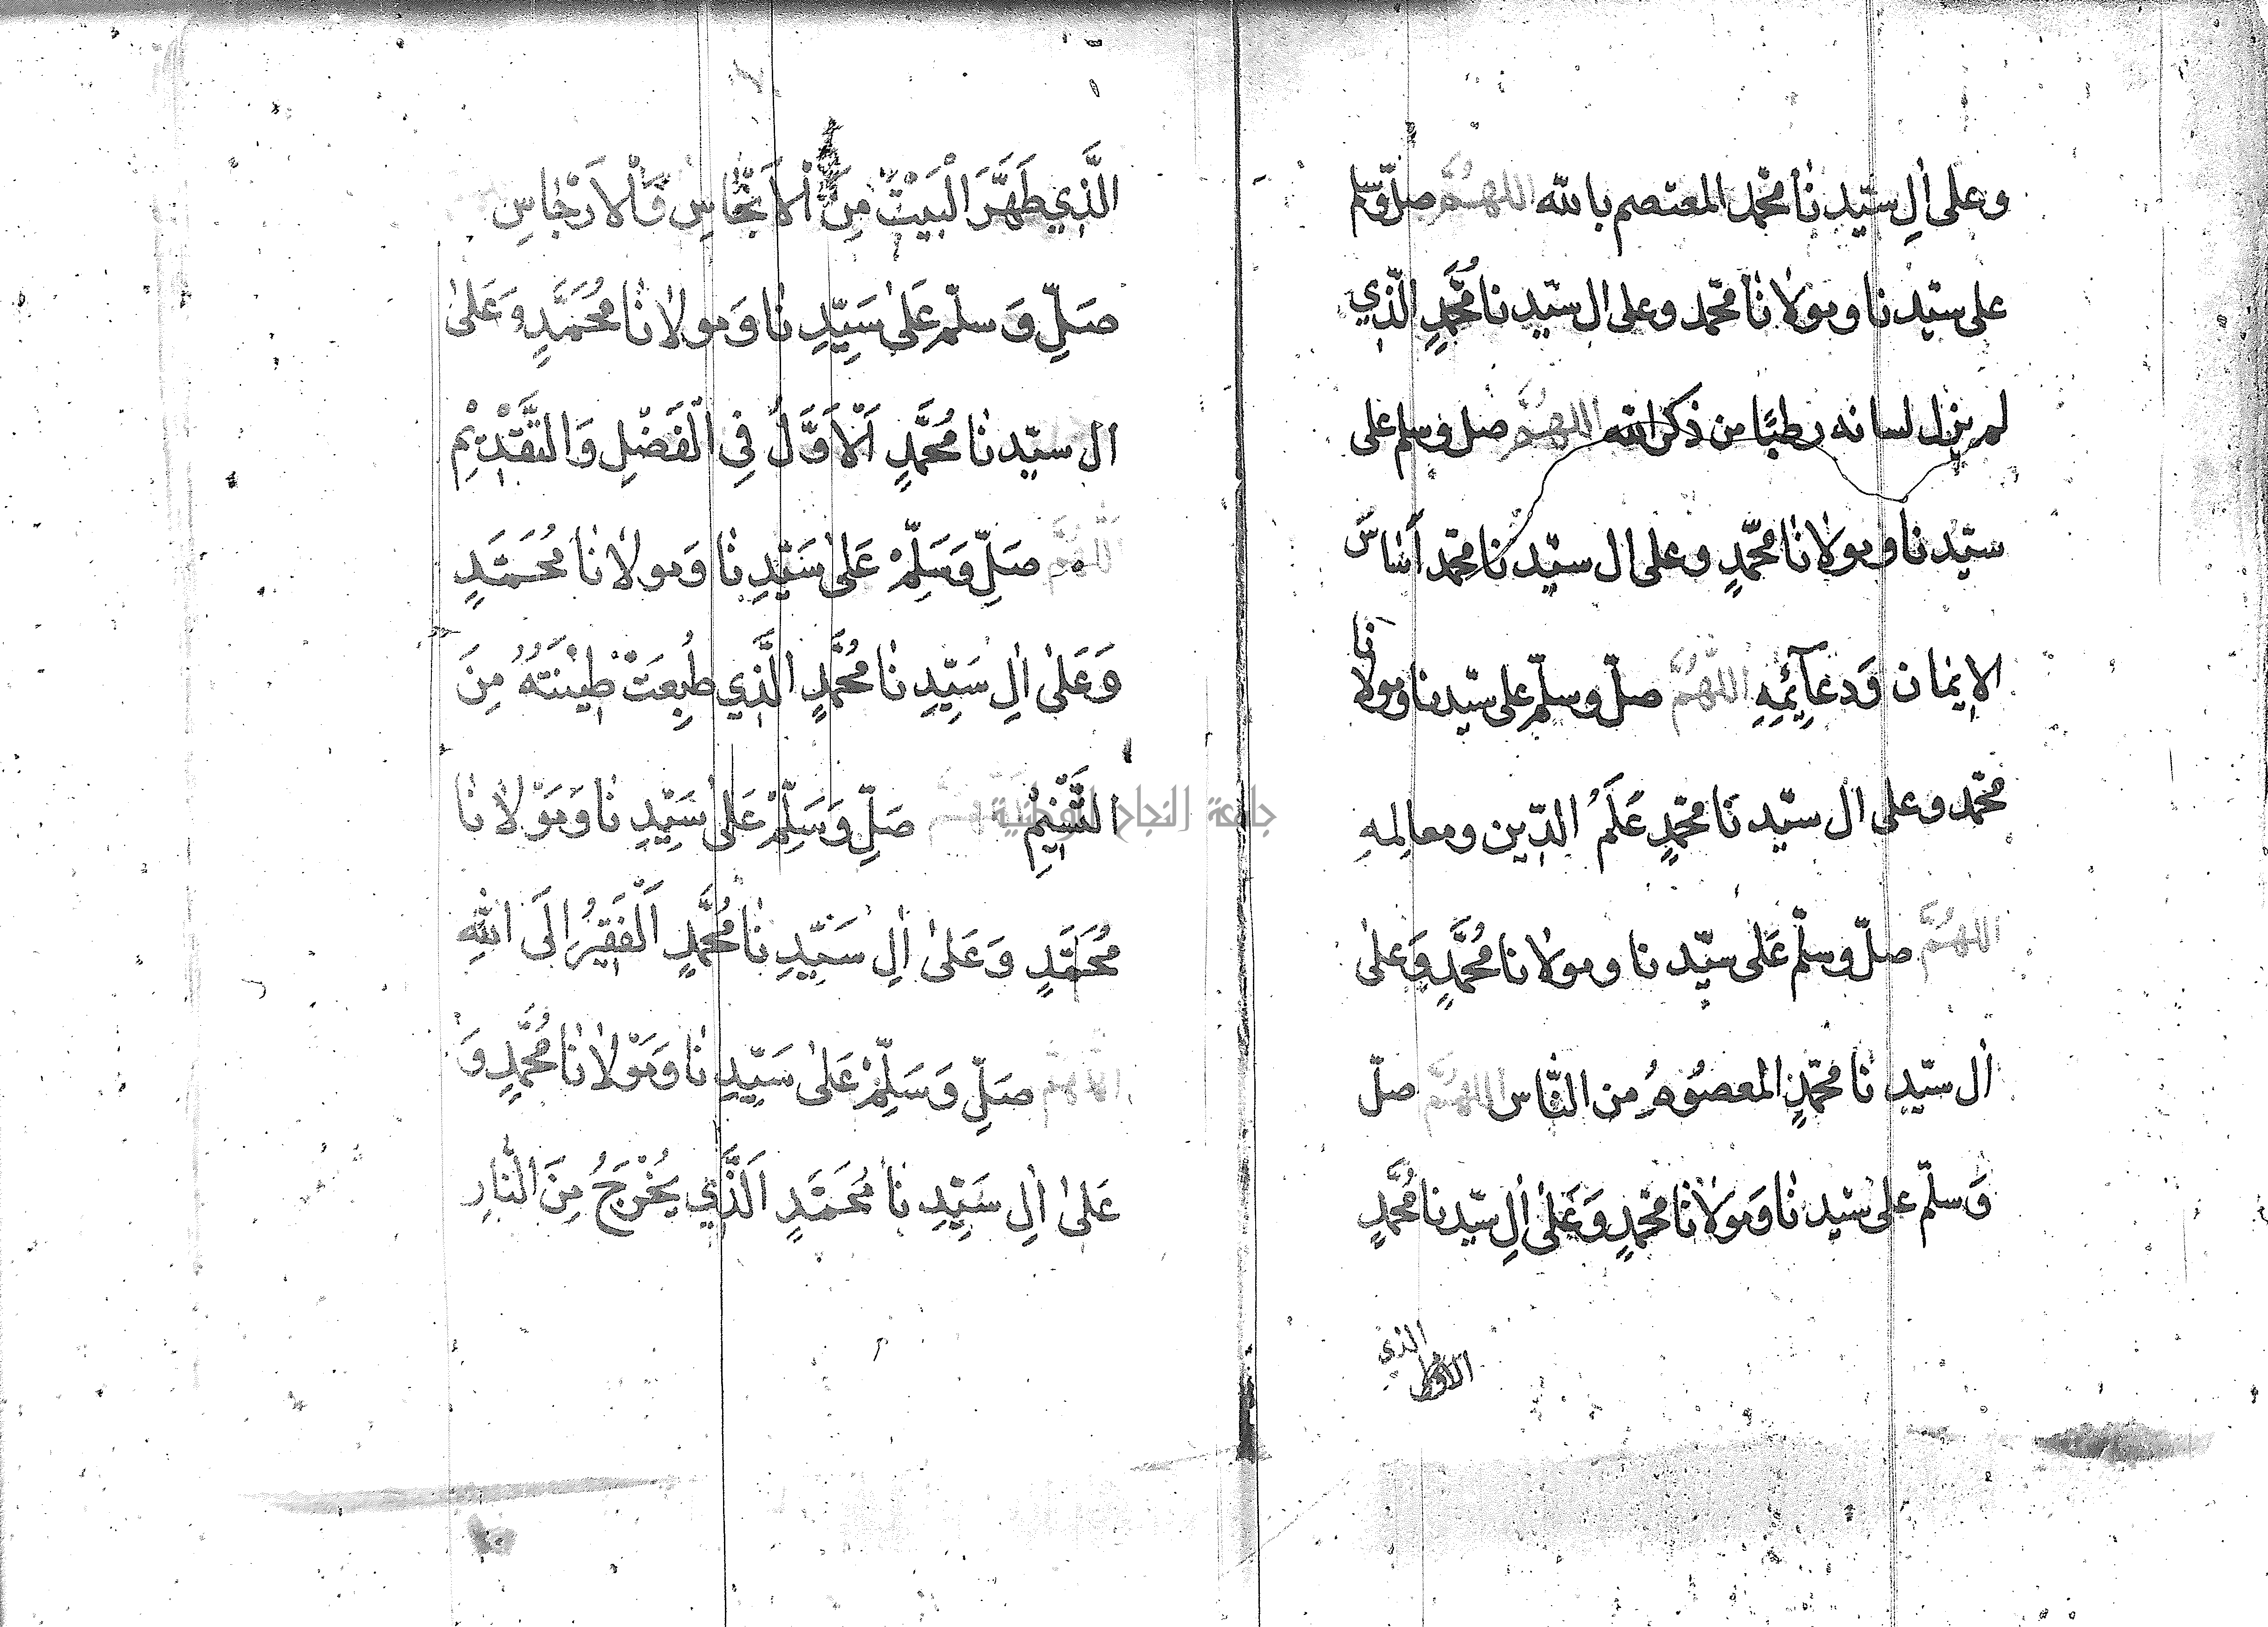 وعلى اٰلِ سيّدنا محمّد المعتصم بالله اللهمّ صلّ وسلم
على سيّدنا ومولانا محمّد وعلى ال سيّدنا محمَّدٍ الّذي
لم يزل لسانه رطبًا من ذكر الله اللهمّ صل وسلم على
سيّدنا ومولانا محمّدٍ وعلى ال سيّدنا محمّد أساس
الإيمان وَدعآئِمِهِ اللّهُمَّ صلّ وسلّم على سيّدنا ومولانا
محمّد وعلى ال سيّدنا محمّدٍ عَلَمُ الدّين ومعالِمهِ
اللهُمَّ صلّ وسلّم عَلى سيّدنا ومولانا محُمَّدٍ وَعلىٰ
اٰل سيّدِنا محمّدٍ المعصُومُ من النّاس اللهمّ صلّ
وَسلّم على سيّدنا وَمولانا محمّدٍ وَعَلىٰ اٰلِ سيّدنا محُمَّدٍ
الذي
الَّذِي طَهَّرَ الْبَيْتَ مِنَ الْاَنْجَاسِ وَالْاَرْجَاسِ
صَلِّ وَسلّم عَلىٰ سَيِّدِنَا وَمولانَا مُحَمَّدٍ وَعَلىٰ
اٰل سيّدنا مُحَمَّدٍ اَلْاَوَّلُ فِي الْفَضْلِ وَالتَّقْدِيْمِ
اللّهُمَّ صَلِّ وَسَلِّمْ عَلىٰ سَيِّدِنَا وَمولانَا مُحَمَّدٍ
وَعَلىٰ اٰلِ سَيِّدِنَا مُحَمَّدٍ الَّذِي طُبِعَتْ طِيْنَتُهُ مِنَ
التَّسْنِيْمِ صَلِّ وَسَلِّمْ عَلىٰ سَيِّدِنَا وَمَوْلانَا
جامعة النجاح الوطنية
مُحَمَّدٍ وَعَلىٰ اٰلِ سَيِّدِنَا مُحَمَّدٍ اَلْفَقِيْرُ اِلَى اللهِ
اللّهُمَّ صَلِّ وَسَلِّمْ عَلىٰ سَيِّدِنَا وَمَوْلانَا مُحَمَّدٍ وَ
عَلىٰ اٰلِ سَيِّدِنَا مُحَمَّدٍ اَلَّذِي يُخْرَجُ مِنَ النَّارِ